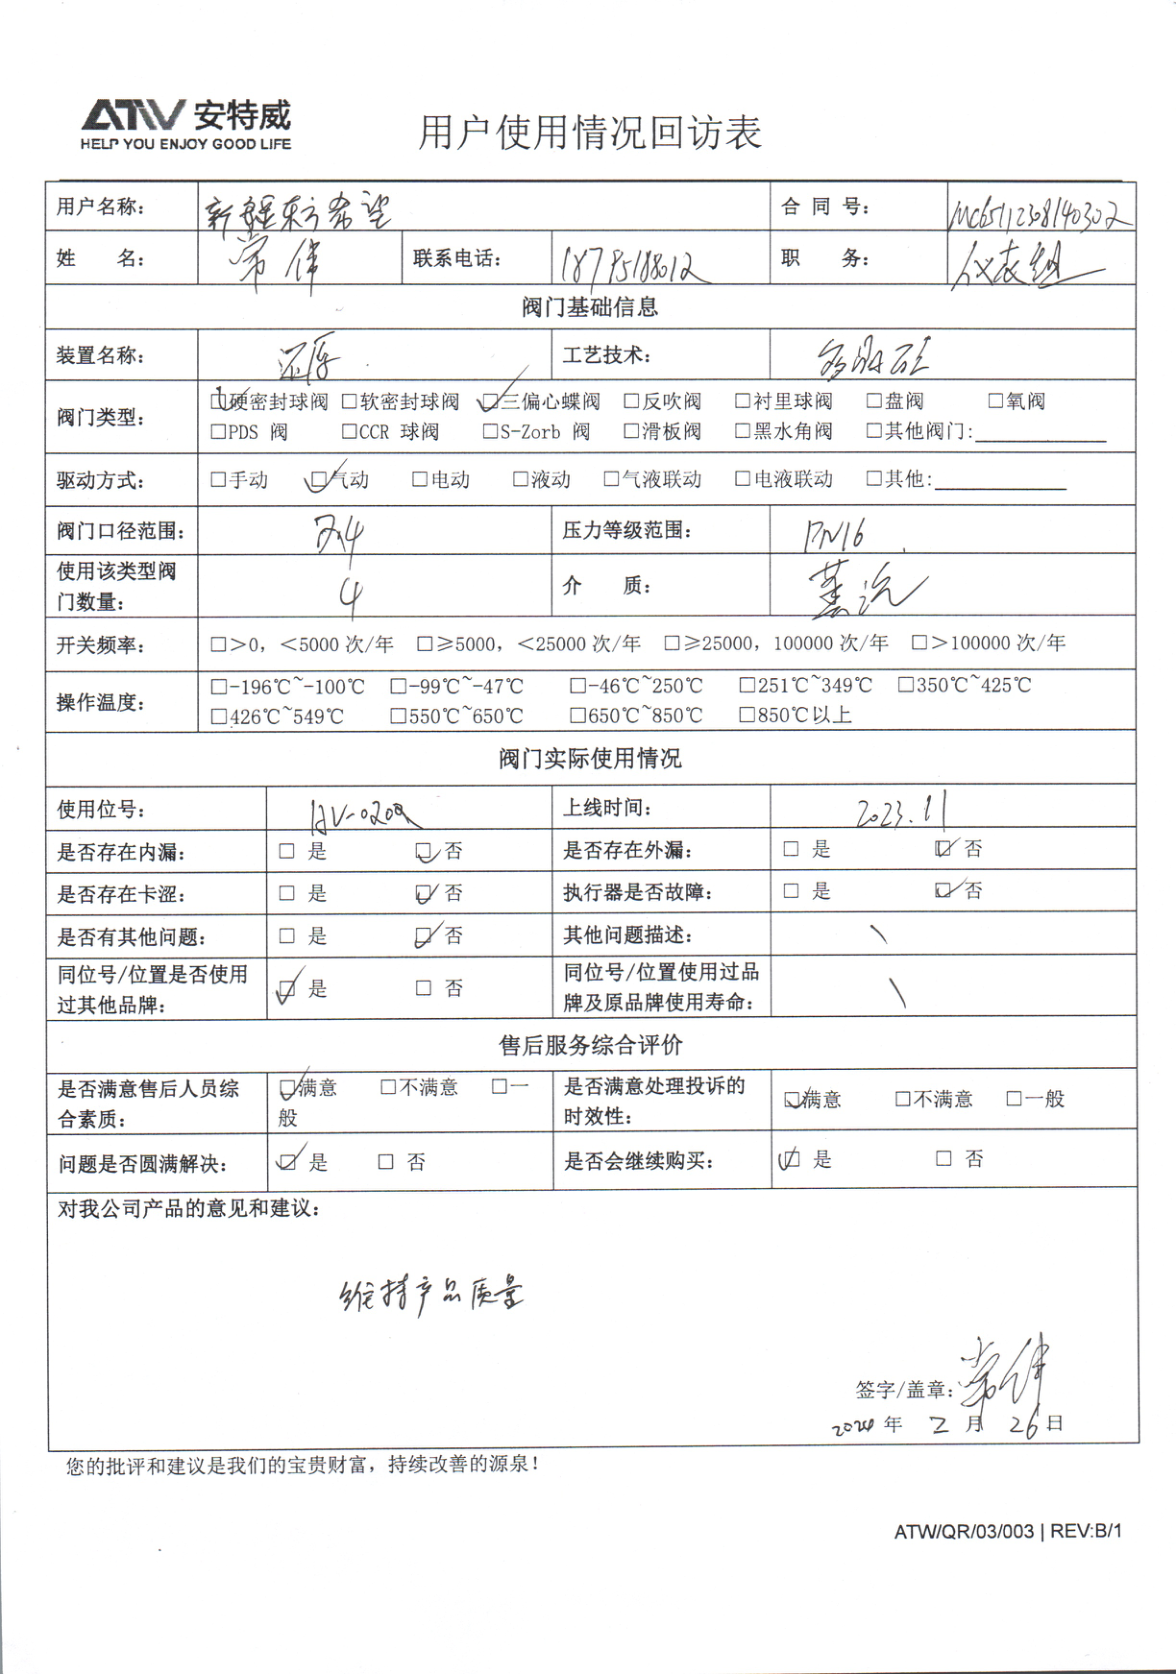 ATW 安特威
HELP YOU ENJOY GOOD LIFE
用户使用情况回访表
用户名称： 新疆东方希望 合同号： MC65112308140302
姓 名： 常伟 联系电话： 18795188012 职 务： 仪表组
阀门基础信息
装置名称： 还原 工艺技术： 多晶硅
阀门类型： □硬密封球阀 □软密封球阀 □三偏心蝶阀 □反吹阀 □衬里球阀 □盘阀 □氧阀
□PDS 阀 □CCR 球阀 □S-Zorb 阀 □滑板阀 □黑水角阀 □其他阀门:
驱动方式： □手动 □气动 □电动 □液动 □气液联动 □电液联动 □其他:
阀门口径范围： 压力等级范围： PN16
使用该类型阀
门数量： 4 介 质： 蒸汽
开关频率： □>0，<5000 次/年 □≥5000，<25000 次/年 □≥25000，100000 次/年 □>100000 次/年
操作温度： □-196℃~-100℃ □-99℃~-47℃ □-46℃~250℃ □251℃~349℃ □350℃~425℃
□426℃~549℃ □550℃~650℃ □650℃~850℃ □850℃以上
阀门实际使用情况
使用位号： HV-0209 上线时间： 2023.11
是否存在内漏： □ 是 □ 否 是否存在外漏： □ 是 □ 否
是否存在卡涩： □ 是 □ 否 执行器是否故障： □ 是 □ 否
是否有其他问题： □ 是 □ 否 其他问题描述： \
同位号/位置是否使用
过其他品牌： □ 是 □ 否 同位号/位置使用过品
牌及原品牌使用寿命： \
售后服务综合评价
是否满意售后人员综
合素质： □满意 □不满意 □一
般 是否满意处理投诉的
时效性： □满意 □不满意 □一般
问题是否圆满解决： □ 是 □ 否 是否会继续购买： □ 是 □ 否
对我公司产品的意见和建议：
维持产品质量
签字/盖章: 常伟
2024 年 2 月 26 日
您的批评和建议是我们的宝贵财富，持续改善的源泉！
ATW/QR/03/003 | REV:B/1